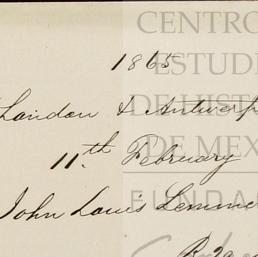 CENTRO
ESTUDI
DE HISTO
DE MEX
FUNDAC
1865
London & Antwerp
11th February
John Louis Lemme